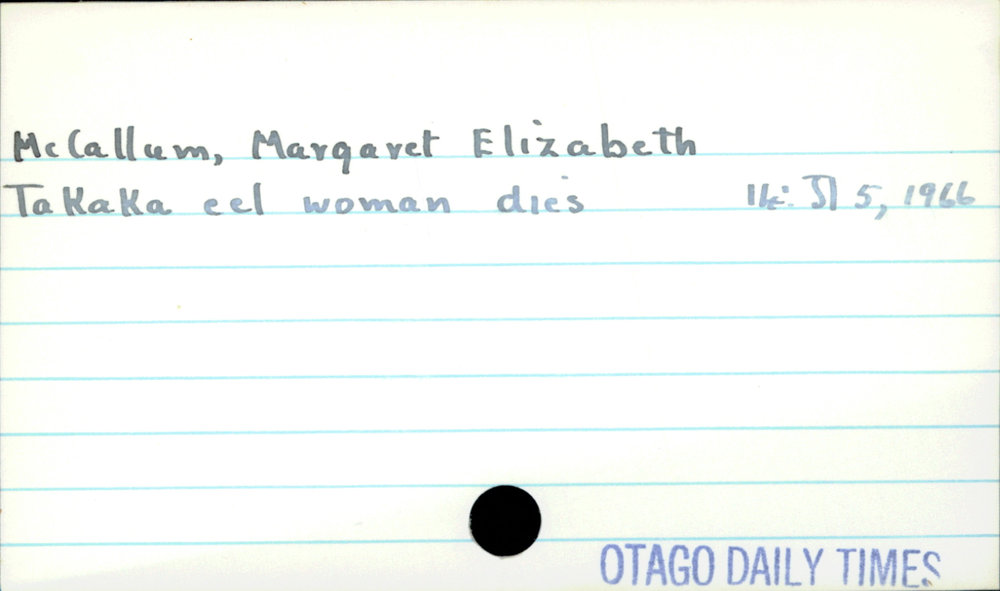 McCallum, Margaret Elizabeth
Takaka eel woman dies 5, 1966
OTAGO DAILY TIMES